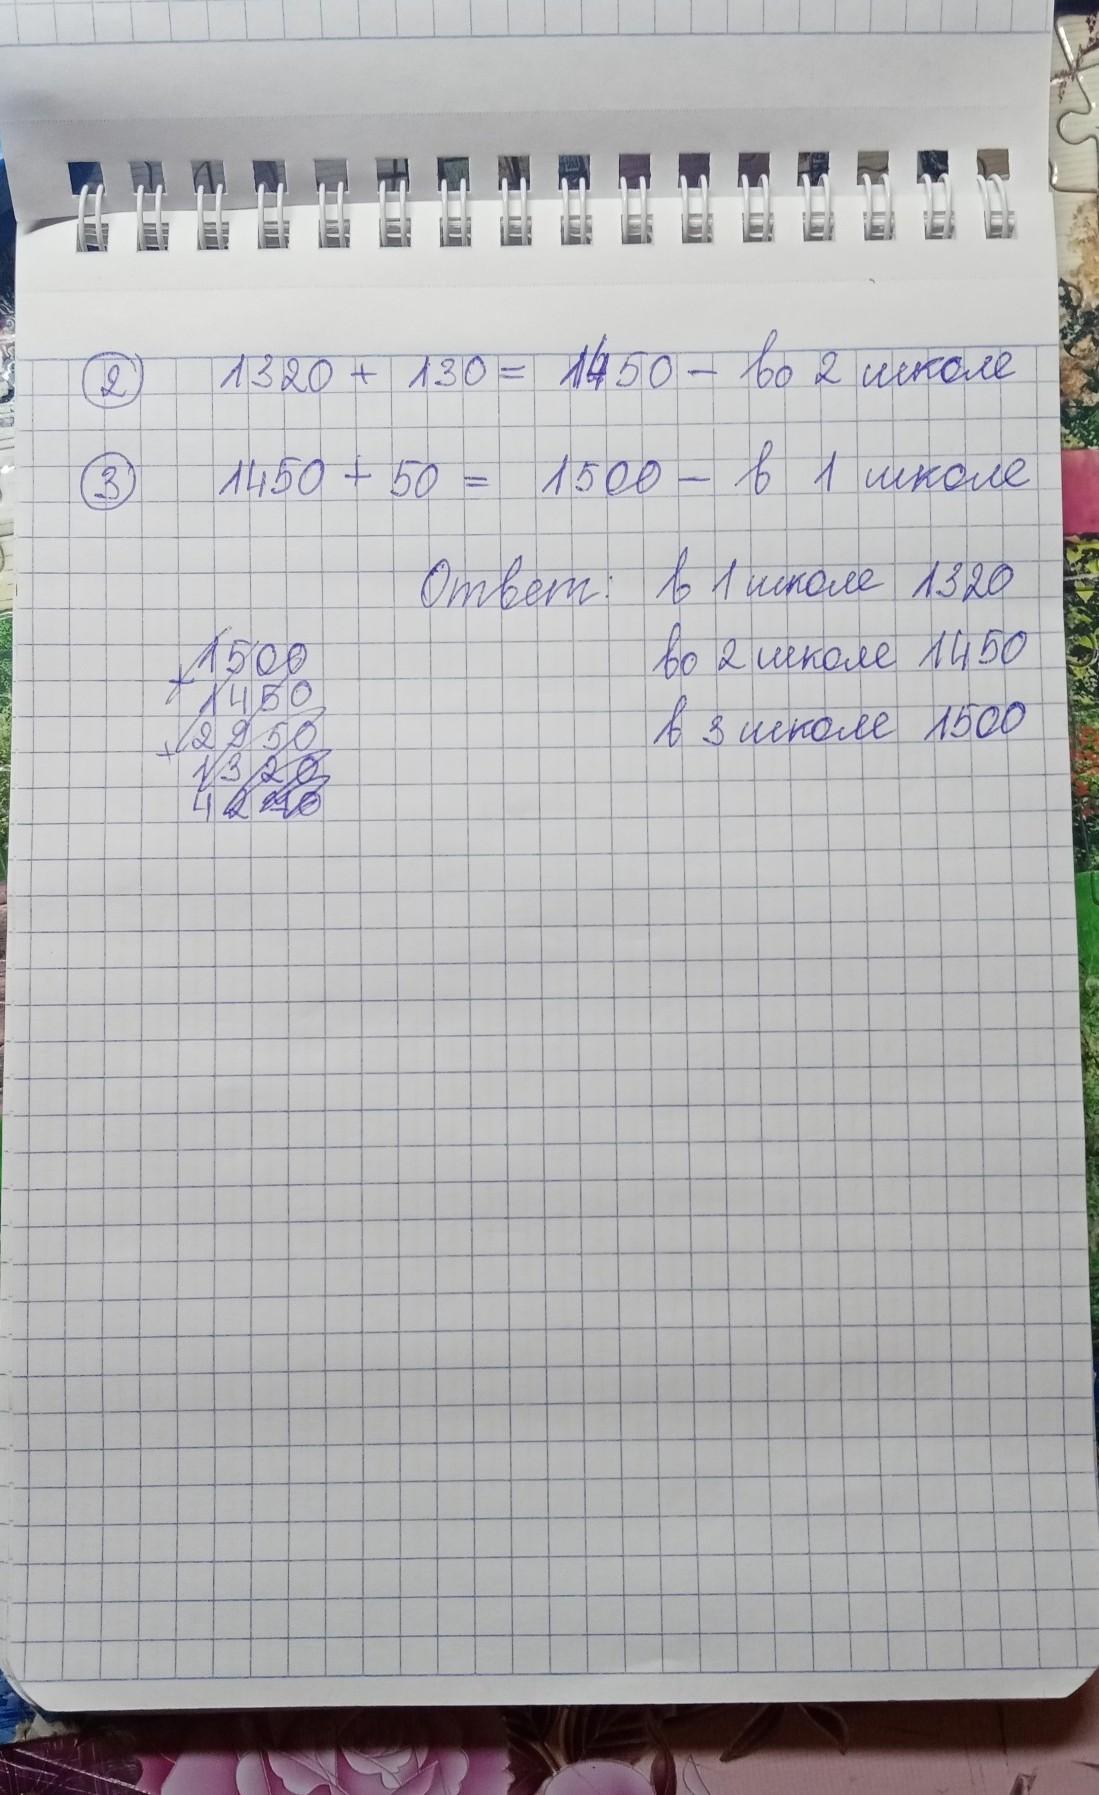 2 1320 + 130 = 1450 - во 2 школе
3 1450 + 50 = 1500 - в 1 школе
Ответ: в 1 школе 1320
во 2 школе 1450
в 3 школе 1500
1500
+
1450
2950
+
1320